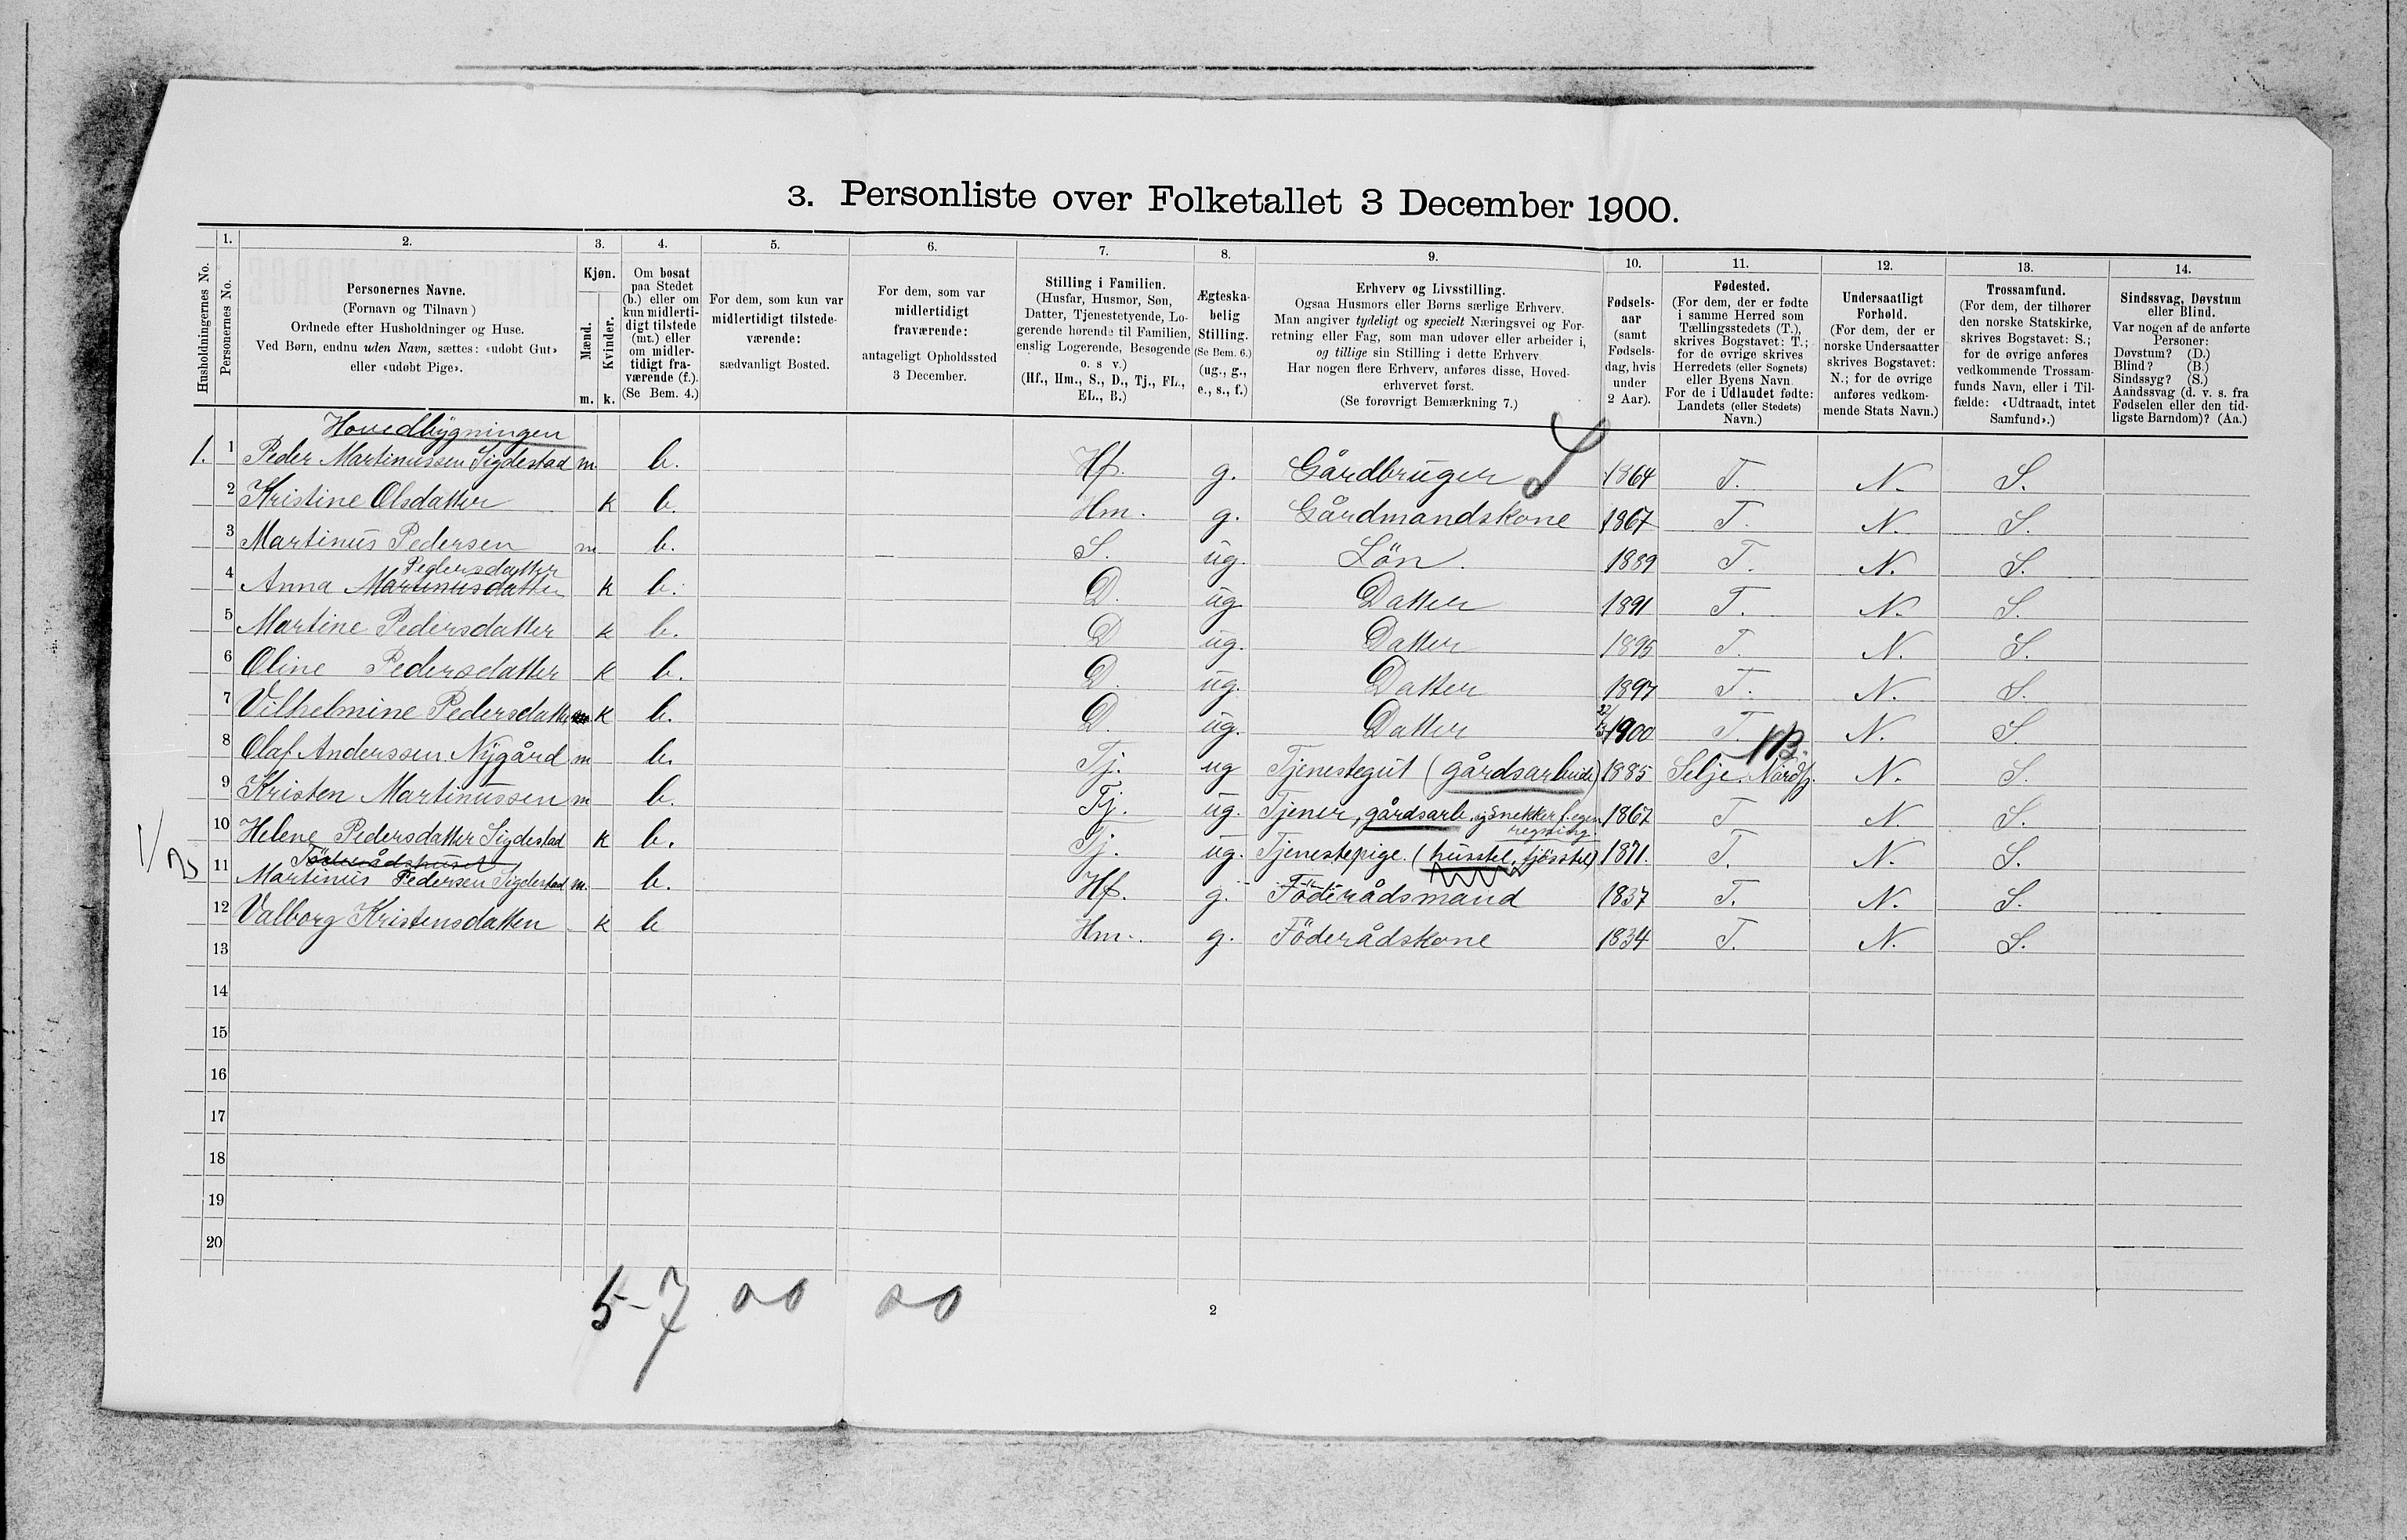 3. Personliste over Folketallet 3 December 1900.
1. 2. 3. 4. 5. 6. 7. 8. 9. 10. 11. 12. 13. 14.
Husholdningernes No.
Personernes No.
Personernes Navne.
(Fornavn og Tilnavn)
Ordnede efter Husholdninger og Huse.
Ved Børn, endnu uden Navn, sættes: «udøbt Gut»
eller «udøbt Pige».
Kjøn.
Mænd.
Kvinder.
m. k.
Om bosat
paa Stedet
(b.) eller om
kun midlerti-
digt tilstede
(mt.) eller
om midler-
tidigt fra-
værende (f.).
(Se Bem. 4.)
For dem, som kun var
midlertidigt tilstede-
værende:
sædvanligt Bosted.
For dem, som var
midlertidigt
fraværende:
antageligt Opholdssted
3 December.
Stilling i Familien.
(Husfar, Husmor, Søn,
Datter, Tjenestetyende, Lo-
gerende hørende til Familien,
enslig Logerende, Besøgende
o. s v.)
(Hf., Hm., S., D., Tj., FL.,
EL., B.)
Ægteska-
belig
Stilling.
(Se Bem. 6.)
(ug., g.,
e., s., f.)
Erhverv og Livsstilling.
Ogsaa Husmors eller Børns særlige Erhverv.
Man angiver tydeligt og specielt Næringsvei og For-
retning eller Fag, som man udøver eller arbeider i,
og tillige sin Stilling i dette Erhverv.
Har nogen flere Erhverv, anføres disse, Hoved-
erhvervet først.
(Se forøvrigt Bemærkning 7.)
Fødsels-
aar
(samt
Fødsels-
dag, hvis
under
2 Aar).
Fødested.
(For dem, der er fødte
i samme Herred som
Tællingsstedets (T.),
skrives Bogstavet: T.;
for de øvrige skrives
Herredets (eller Sognets)
eller Byens Navn.
For de i Udlandet fødte:
Landets (eller Stedets)
Navn.)
Undersaatligt
Forhold.
(For dem, der er
norske Undersaatter
skrives Bogstavet:
N.; for de øvrige
anføres vedkom-
mende Stats Navn.)
Trossamfund.
(For dem, der tilhører
den norske Statskirke,
skrives Bogstavet: S.;
for de øvrige anføres
vedkommende Trossam-
funds Navn, eller i Til-
fælde: «Udtraadt, intet
Samfund».)
Sindssvag, Døvstum
eller Blind.
Var nogen af de anførte
Personer:
Døvstum? (D.)
Blind? (B.)
Sindssyg? (S.)
Aandssvag (d. v. s. fra
Fødselen eller den tid-
ligste Barndom)? (Aa.)
Hovedbygningen
1. 1 Peder Martinussen Sigdestad m. b. Hf. g. Gårdbruger 1864 T. N. S.
2 Kristine Olsdatter k b. Hm. g. Gårdmandskone 1867 T. N. S.
3 Martinus Pedersen m b. S. ug. Sön. 1889 T. N. S.
Pedersdatter
4 Anna Martinusdatter k b. D. ug 1891 Datter T. N. S.
5 Martine Pedersdatter k b. D ug. Datter 1895 T. N. S.
6 Oline Pedersdatter k b. D. ug. Datter 1897 T. N. S.
7 Vilhelmine Pedersdatter k b. D. ug. Datter 1900 T. N. S.
8 Olaf Anderssen Nygård m b. Tj. ug Tjenestegut (gårdsarbeide) 1885 Selje Nordfj. N. S.
9 Kristen Martinussen m b. Tj. ug. Tjener, gårdsarb. og snekker f. egen 1867 T N. S.
regning.
10 Helene Pedersdatter Sigdestad k b. Tj. ug. Tjenestepige. (husstel, fjösstel) 1871. T. N. S.
Föderådshuset
11 Martinus Pedersen Sigdestad m. b. Hf. g. Föderådsmand 1837 T. N. S.
12 Valborg Kristensdatter k b Hm. g. Föderådskone 1834 T. N. S.
13
14
15
16
17
18
19
20
5-7 00 00
2